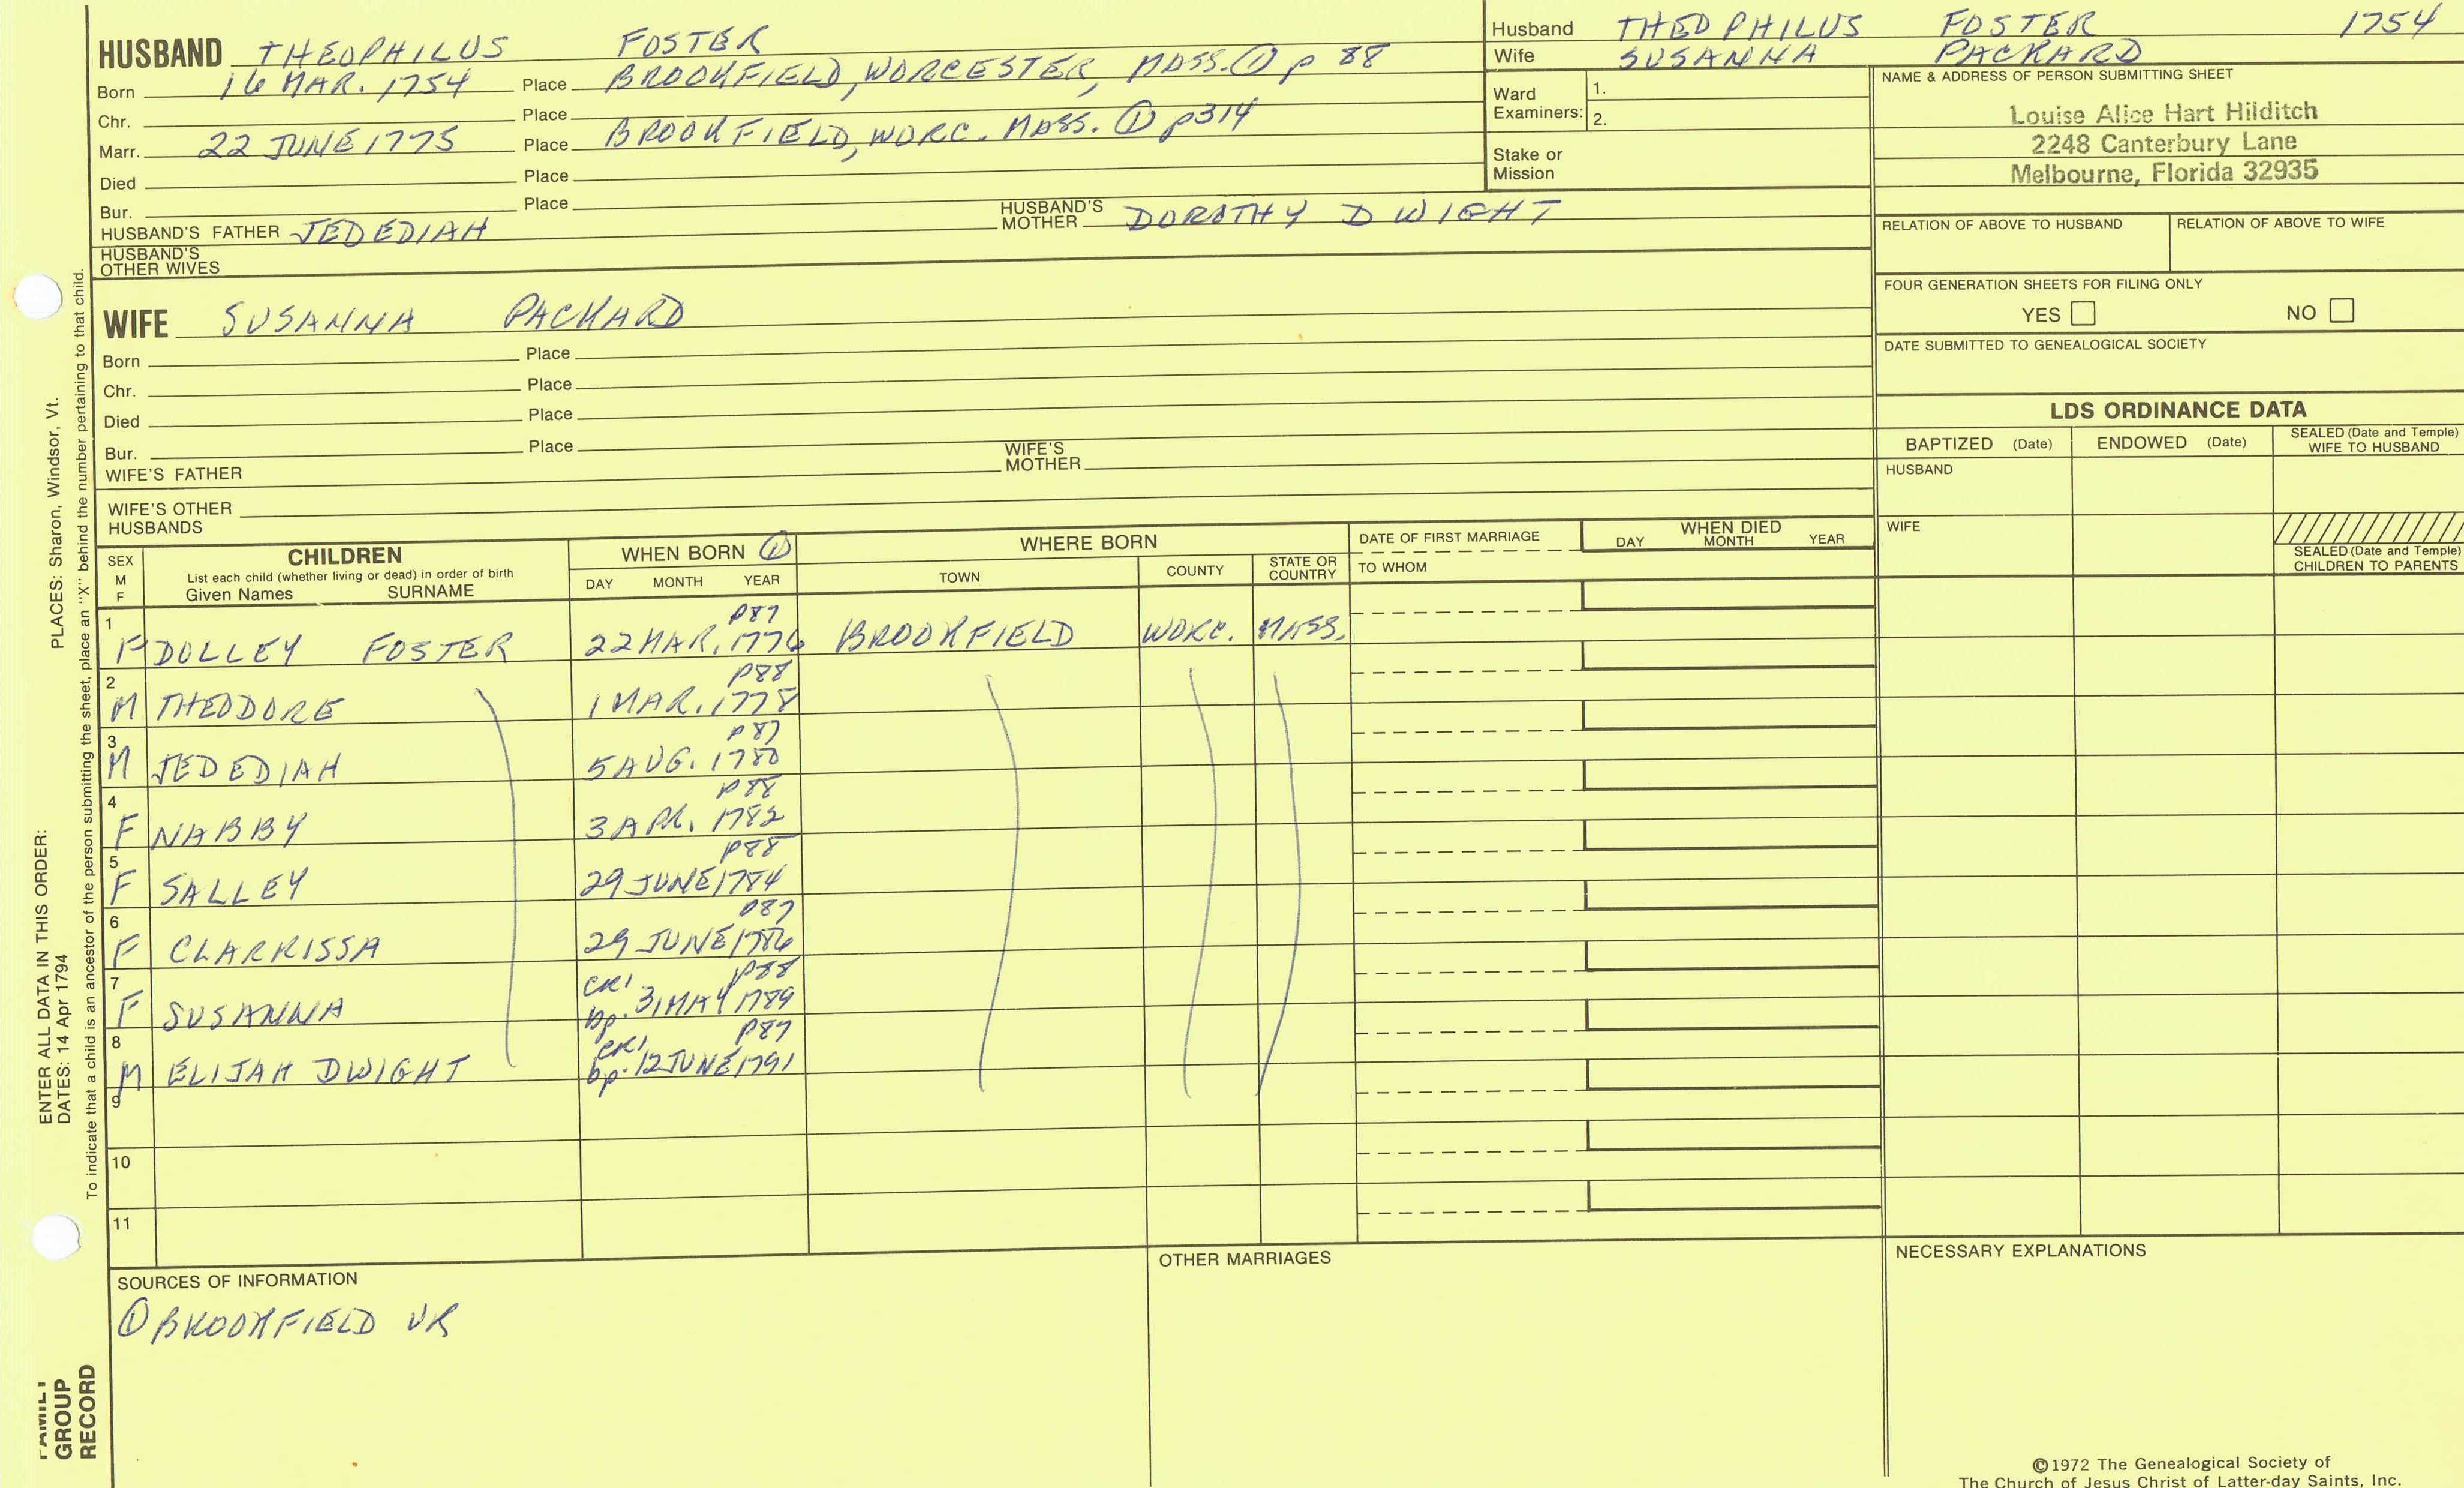 HUSBAND THEOPHILUS FOSTER
Born 16 MAR. 1754 Place BROOKFIELD, WORCESTER, MASS. ① p 88
Chr. Place
Marr. 22 JUNE 1775 Place BROOKFIELD, WORC. MASS. ① p314
Died Place
Bur. Place
HUSBAND'S FATHER JEDEDIAH HUSBAND'S MOTHER DOROTHY DWIGHT
HUSBAND'S OTHER WIVES
WIFE SUSANNA PACKARD
Born Place
Chr. Place
Died Place
Bur. Place
WIFE'S FATHER WIFE'S MOTHER
WIFE'S OTHER HUSBANDS
Husband THEOPHILUS FOSTER 1754
Wife SUSANNA PACKARD
Ward Examiners: 1.
2.
Stake or Mission
NAME & ADDRESS OF PERSON SUBMITTING SHEET
Louise Alice Hart Hilditch
2248 Canterbury Lane
Melbourne, Florida 32935
RELATION OF ABOVE TO HUSBAND RELATION OF ABOVE TO WIFE
FOUR GENERATION SHEETS FOR FILING ONLY
YES NO
DATE SUBMITTED TO GENEALOGICAL SOCIETY
LDS ORDINANCE DATA
BAPTIZED (Date) ENDOWED (Date) SEALED (Date and Temple) WIFE TO HUSBAND
HUSBAND
WIFE
SEALED (Date and Temple) CHILDREN TO PARENTS
SEX M F
CHILDREN
List each child (whether living or dead) in order of birth
Given Names SURNAME
WHEN BORN ①
DAY MONTH YEAR
WHERE BORN
TOWN COUNTY STATE OR COUNTRY
DATE OF FIRST MARRIAGE
TO WHOM
WHEN DIED
DAY MONTH YEAR
1 p87
F DOLLEY FOSTER 22 MAR. 1776 BROOKFIELD WORC. MASS.
2 p88
M THEODORE 1 MAR. 1778
3 p87
M JEDEDIAH 5 AUG. 1780
4 p88
F NABBY 3 APR. 1782
5 p88
F SALLEY 29 JUNE 1784
6 p87
F CLARRISSA 29 JUNE 1786
7 CR1 p88
F SUSANNA bp. 31 MAY 1789
8 CR1 p87
M ELIJAH DWIGHT bp. 12 JUNE 1791
9
10
11
SOURCES OF INFORMATION
① BROOKFIELD VR
OTHER MARRIAGES
NECESSARY EXPLANATIONS
©1972 The Genealogical Society of
The Church of Jesus Christ of Latter-day Saints, Inc.
ENTER ALL DATA IN THIS ORDER:
DATES: 14 Apr 1794 PLACES: Sharon, Windsor, Vt.
To indicate that a child is an ancestor of the person submitting the sheet, place an "X" behind the number pertaining to that child.
FAMILY
GROUP
RECORD